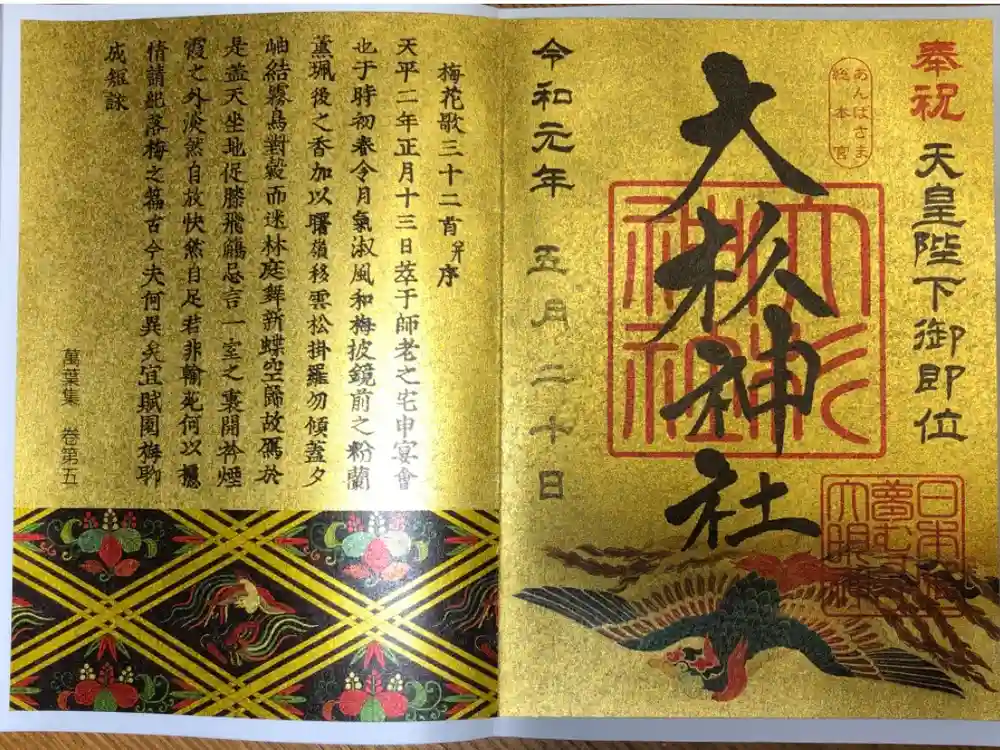 奉祝 天皇陛下御即位
あんばさま
総本宮
大杉神社
大杉
神社
令和元年 五月二十日
梅花歌三十二首并序
天平二年正月十三日萃于師老之宅申宴會
也于時初春令月氣淑風和梅披鏡前之粉蘭
薫珮後之香加以曙嶺移雲松掛羅勿傾蓋夕
岫結霧鳥對縠而迷林庭舞新蝶空歸故鴈於
是蓋天坐地促膝飛觴忘言一室之裏開衿煙
霞之外淡然自放快然自足若非翰苑何以攄
情請紀落梅之篇古今夫何異矣宜賦園梅聊
成短詠
萬葉集 卷第五